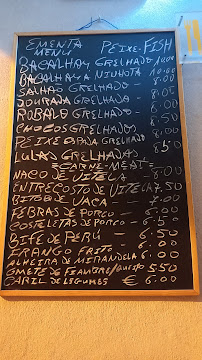 EMENTA PEIXE-FISH
MENU
BACALHAU GRELHADO
BACALHAU A MINHOTA
SALMAO GRELHADO - 8.00
DOURADA GRELHADA - 8.00
ROBALO GRELHADO - 8.00
CHOCOS GRELHADOS 8.00
PEIXE ESPADA GRELHADO
LULAS GRELHADAS 8.50
CARNE-MEAT
NACO DE VITELA - 8.00
ENTRECOSTO DE VITELA 7.50
BITOQUE VACA - 7.00
FEBRAS DE PORCO - 6.00
COSTELETAS DE PORCO - 6.50
BIFE DE PERU - 6.50
FRANGO FRITO - 6.00
ALHEIRA DE MIRANDELA 6.00
OMETE DE FIAMBRE/QUEIJO 5.50
CARIL DE LEGUMES € 6.00